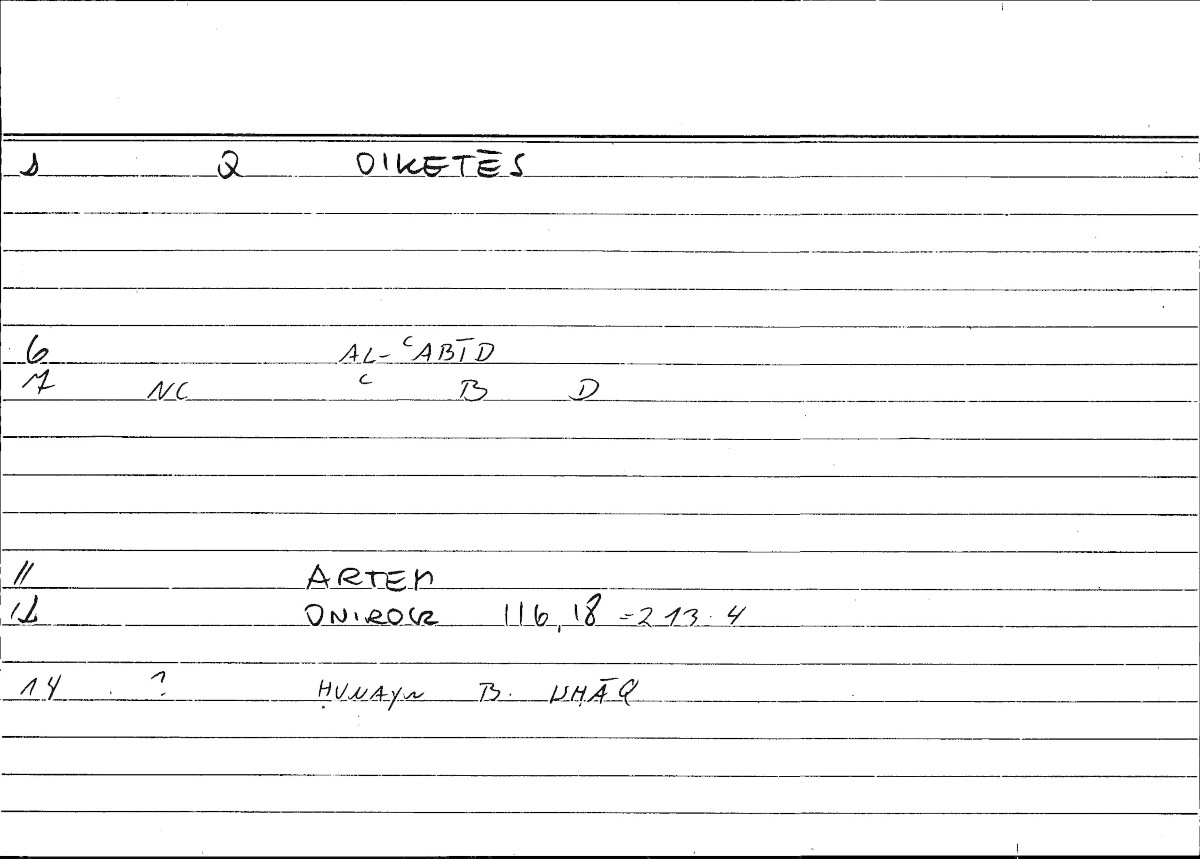 1 Q OIKETĒS
6 AL-ʿABĪD
7 NC ʿ B D
11 ARTEM
12 ONIROCR 116,18 = 213.4
14 ? ḤUNAYN B. ISḤĀQ